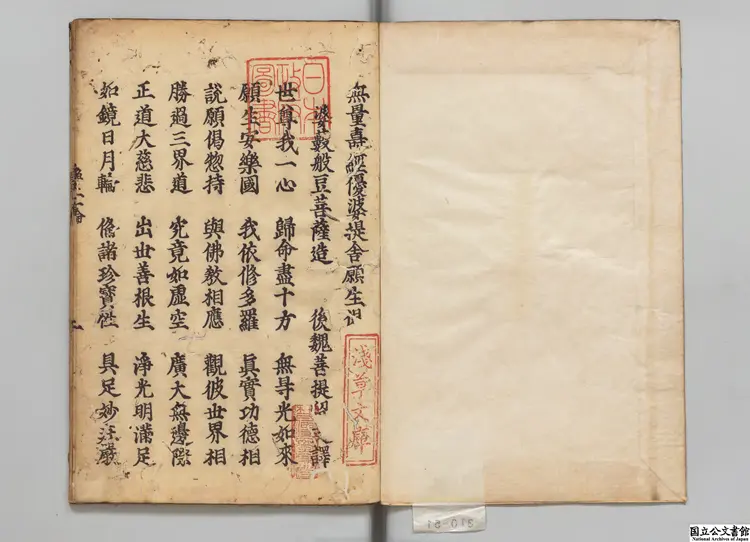 無量壽經優婆提舍願生
婆藪般豆菩薩造　後魏菩提　譯
世尊我一心　歸命盡十方　無㝵光如來
願生安樂國　我依修多羅　眞實功德相
說願偈惣持　與佛教相應　觀彼世界相
勝過三界道　究竟如虛空　廣大無邊際
正道大慈悲　出世善根生　淨光明滿足
如鏡日月輪　俻諸珍寶性　具足妙莊嚴
日本政府圖書
淺草文庫
国立公文書館
National Archives of Japan